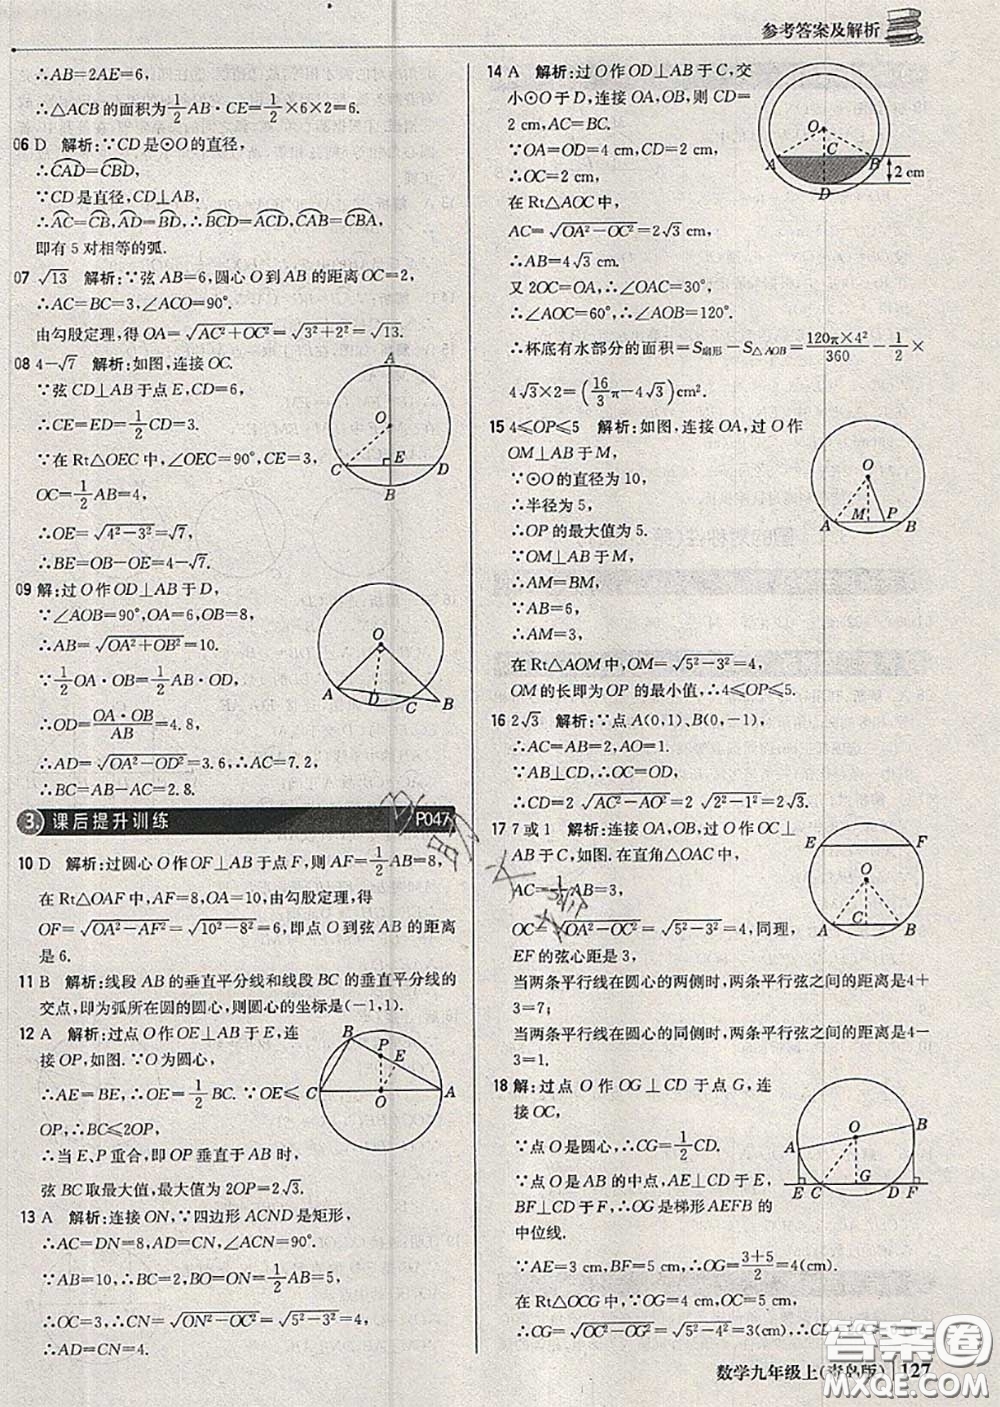 参考答案及解析
∴AB=2AE=6,
∴△ACB的面积为1/2AB·CE=1/2×6×2=6.
06 D 解析:∵CD是⊙O的直径,
∴CAD=CBD,
∵CD是直径,CD⊥AB,
∴AC=CB,AD=BD,∴BCD=ACD,CAB=CBA,
即有5对相等的弧.
07 √13 解析:∵弦AB=6,圆心O到AB的距离OC=2,
∴AC=BC=3,∠ACO=90°.
由勾股定理,得OA=√(AC²+OC²)=√(3²+2²)=√13.
08 4-√7 解析:如图,连接OC.
∵弦CD⊥AB于点E,CD=6,
∴CE=ED=1/2CD=3.
∵在Rt△OEC中,∠OEC=90°,CE=3,
OC=1/2AB=4,
∴OE=√(4²-3²)=√7,
∴BE=OB-OE=4-√7.
A
O
C E D
B
09 解:过O作OD⊥AB于D,
∵∠AOB=90°,OA=6,OB=8,
∴AB=√(OA²+OB²)=10.
∵1/2OA·OB=1/2AB·OD,
∴OD=OA·OB/AB=4.8.
∴AD=√(OA²-OD²)=3.6,∴AC=7.2,
∴BC=AB-AC=2.8.
O
A D C B
3. 课后提升训练 P047
10 D 解析:过圆心O作OF⊥AB于点F,则AF=1/2AB=8,
在Rt△OAF中,AF=8,OA=10,由勾股定理,得
OF=√(OA²-AF²)=√(10²-8²)=6,即点O到弦AB的距离
是6.
11 B 解析:线段AB的垂直平分线和线段BC的垂直平分线的
交点,即为弧所在圆的圆心,则圆心的坐标是(-1,1).
12 A 解析:过点O作OE⊥AB于E,连
接OP,如图.∵O为圆心,
∴AE=BE,∴OE=1/2BC. ∵OE≤
OP,∴BC≤2OP,
∴当E,P重合,即OP垂直于AB时,
弦BC取最大值,最大值为2OP=2√3.
B
P E
C O A
13 A 解析:连接ON,∵四边形ACND是矩形,
∴AC=DN=8,AD=CN,∠ACN=90°.
∵AB=10,∴BC=2,BO=ON=1/2AB=5,
∴OC=3,∴CN=√(ON²-OC²)=√(5²-3²)=4,
∴AD=CN=4.
14 A 解析:过O作OD⊥AB于C,交
小⊙O于D,连接OA,OB,则CD=
2 cm,AC=BC.
∵OA=OD=4 cm,CD=2 cm,
∴OC=2 cm.
在Rt△AOC中,
AC=√(OA²-OC²)=2√3 cm,
∴AB=4√3 cm.
又2OC=OA,∴∠OAC=30°,
∴∠AOC=60°,∴∠AOB=120°.
∴杯底有水部分的面积=S扇形-S△AOB=120π×4²/360-1/2×
4√3×2=(16/3π-4√3)cm².
O
A C B
D
2 cm
15 4≤OP≤5 解析:如图,连接OA,过O作
OM⊥AB于M,
∵⊙O的直径为10,
∴半径为5,
∴OP的最大值为5.
∵OM⊥AB于M,
∴AM=BM,
∵AB=6,
∴AM=3,
在Rt△AOM中,OM=√(5²-3²)=4,
OM的长即为OP的最小值,∴4≤OP≤5.
O
A M P B
16 2√3 解析:∵点A(0,1)、B(0,-1),
∴AC=AB=2,AO=1.
∵AB⊥CD,∴OC=OD,
∴CD=2OC=2√(AC²-AO²)=2√(2²-1²)=2√3.
17 7或1 解析:作OC⊥
AB于C,如图.在直角△OAC中,
AC=1/2AB=3,
OC=√(OA²-AC²)=√(5²-3²)=4,同理,
EF的弦心距是3,
当两条平行线在圆心的两侧时,两条平行弦之间的距离是4+
3=7;
当两条平行线在圆心的同侧时,两条平行弦之间的距离是4-
3=1.
E F
O
A C B
18 解:过点O作OG⊥CD于点G,连
接OC,
∵点O是圆心,∴CG=1/2CD.
∵点O是AB的中点,AE⊥CD于E,
BF⊥CD于F,∴OG是梯形AEFB的
中位线.
∵AE=3 cm,BF=5 cm,∴OG=(3+5)/2=4(cm).
在Rt△OCG中,∵OG=4 cm,OC=5 cm,
∴CG=√(OC²-OG²)=√(5²-4²)=3(cm),
B
O
A
E C G D F
数学九年级上(青岛版) 127
答案圈
MXQE.COM